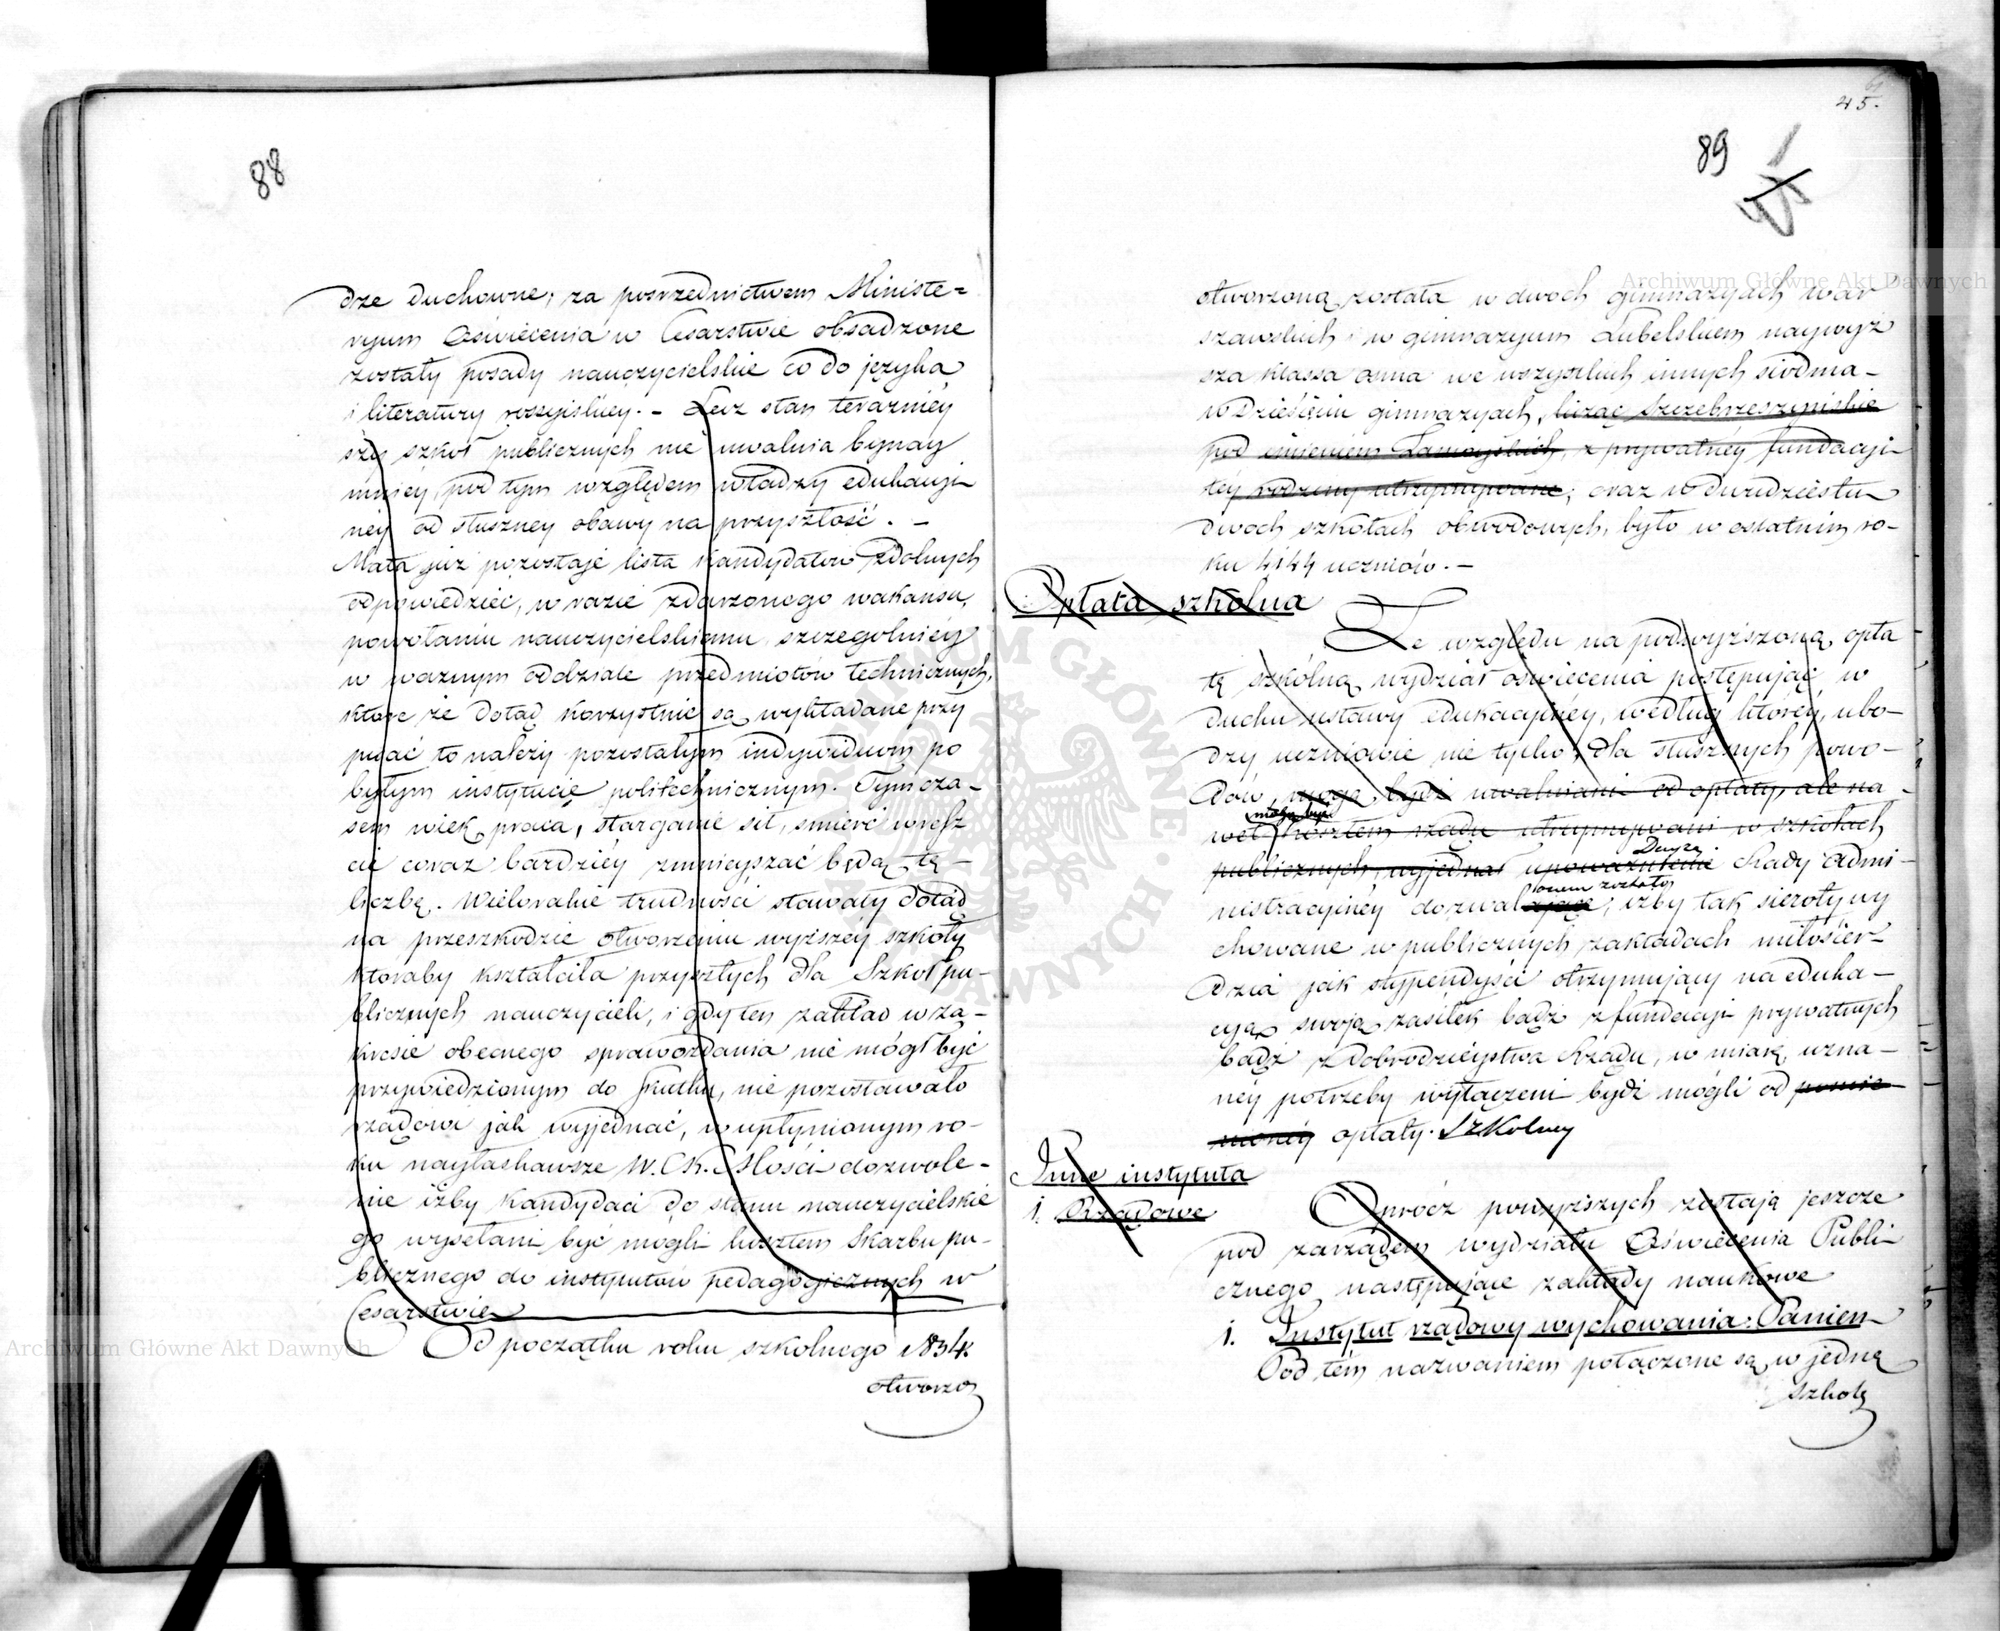 88
dze duchowne; za pośrzednictwem Ministe=
ryum Oświecenia w Cesarstwie obsadzone
zostały posady nauczycielskie co do języka
i literatury rossyiskiey. - Lecz stan teraźniey
szy szkół publicznych nie uwalnia bynay
mniey, pod tym względem władzy edukacyi
ney od słuszney obawy na przyszłość. -
Mała już pozostaje lista kandydatów zdolnych
odpowiedzieć, w razie zdarzonego wakansu,
powołaniu nauczycielskiemu, szczególniey
w ważnym oddziale przedmiotów technicznych,
które że dotąd korzystnie są wykładane przy
pisać to należy pozostałym indywiduom po
byłym instytucie politechnicznym. Tymcza-
sem wiek, praca, starganie sił, śmierć wresz
cie coraz bardziéy zmnieyszać będą tę -
liczbę. Wielorakie trudności stawały dotąd
na przeszkodzie otworzeniu wyższéy szkoły
któraby kształciła przyszłych dla Szkół pu-
blicznych nauczycieli, i gdy ten zakład w za-
kresie obecnego sprawozdania nie mógł być
przywiedzionym do skutku, nie pozostawało
rządowi jak wyjednać, w upłynionym ro-
ku nayłaskawsze W. C. K. Mości dozwole-
nie iżby kandydaci do stanu nauczycielskie
go wysełani być mogli kosztem Skarbu pu-
blicznego do instytutów pedagogicznych w
Cesarstwie
Od początku roku szkolnego 1834.
otworzo
45.
89
otworzoną została w dwóch gimnazyach war
szawskich i w gimnazyum Lubelskiem naywyż
sza klassa osma we wszystkich innych siódma -
w dziesięciu gimnazyach, licząc Szczebrzeszyńskie
pod imieniem Zamoyskich, z prywatnéy fundacyi
téy rodziny utrzymywane; oraz w dwudziestu
dwóch szkołach obwodowych, było w ostatnim ro-
ku 4144 uczniów. -
Opłata szkolna
Ze względu na podwyższoną opła
tę szkólną wydział oświecenia postępując w
duchu ustawy edukacyinéy, według któréy, ubo-
dzy uczniowie nie tylko, dla słusznych powo-
dów, mogą bydź uwalniani od opłaty, ale na-
mogą być
wet kosztem rządu utrzymywani w szkołach
publicznych, wyjednał upoważnienie Rady Admi-
nistracyinéy dozwalające; iżby tak sieroty wy
lonem zostało
chowane w publicznych zakładach miłosier-
dzia jak stypendyści otrzymujący na eduka-
cyą swoją zasiłek bądź z fundacyi prywatnych
bądź z dobrodzieystwa Rządu, w miarę uzna-
néy potrzeby wyłączeni bydź mogli od pomie
nionéy opłaty. Szkolney
Inne instytuta
1. Rządowe
Oprócz powyższych zostają jeszcze
pod zarządem wydziału Oświecenia Publi
cznego następujące zakłady naukowe
1. Instytut rządowy wychowania Panien
Pod tém nazwaniem połączone są w jedną
szkołę
Archiwum Główne Akt Dawnych
Archiwum Główne Akt Dawnych
ARCHIWUM GŁÓWNE AKT DAWNYCH